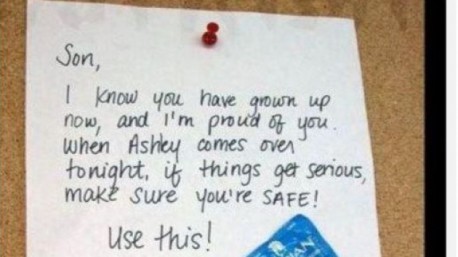 Son,
I know you have grown up
now, and I'm proud of you.
When Ashley comes over
tonight, if things get serious,
make sure you're SAFE!
Use this!